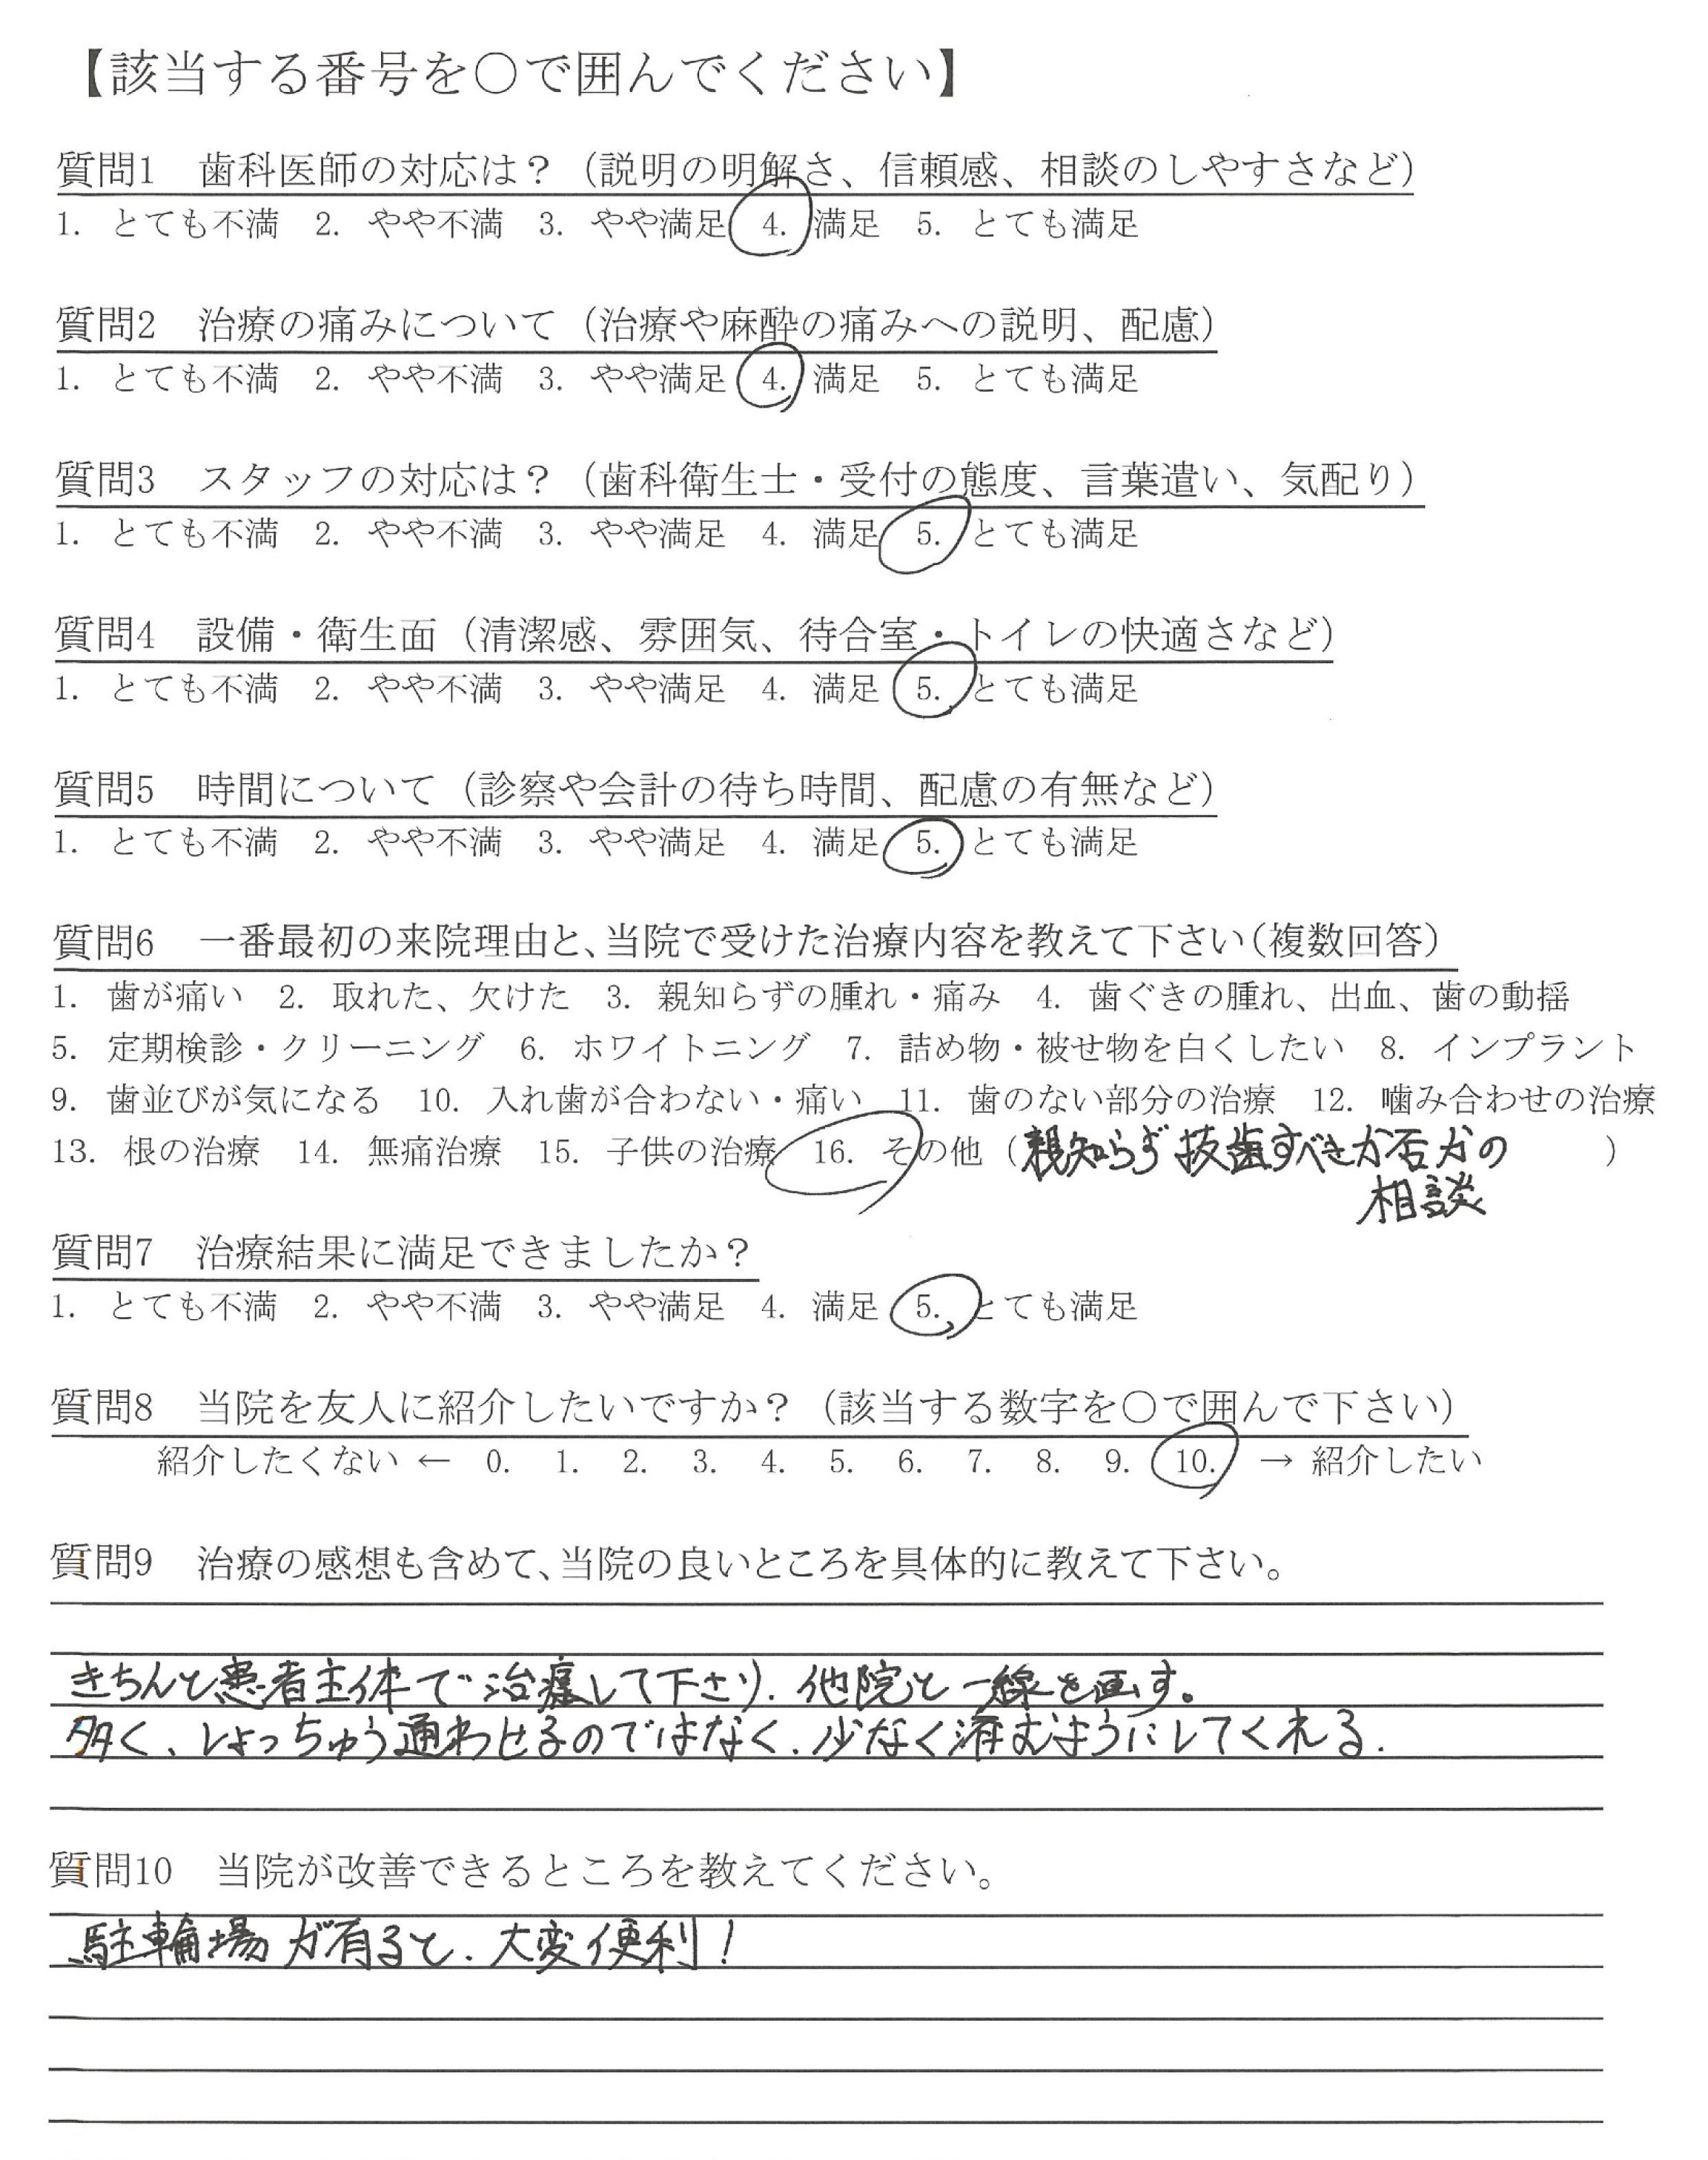 【該当する番号を○で囲んでください】
質問1 歯科医師の対応は？（説明の明解さ、信頼感、相談のしやすさなど）
1. とても不満 2. やや不満 3. やや満足 4. 満足 5. とても満足
質問2 治療の痛みについて（治療や麻酔の痛みへの説明、配慮）
1. とても不満 2. やや不満 3. やや満足 4. 満足 5. とても満足
質問3 スタッフの対応は？（歯科衛生士・受付の態度、言葉遣い、気配り）
1. とても不満 2. やや不満 3. やや満足 4. 満足 5. とても満足
質問4 設備・衛生面（清潔感、雰囲気、待合室・トイレの快適さなど）
1. とても不満 2. やや不満 3. やや満足 4. 満足 5. とても満足
質問5 時間について（診察や会計の待ち時間、配慮の有無など）
1. とても不満 2. やや不満 3. やや満足 4. 満足 5. とても満足
質問6 一番最初の来院理由と、当院で受けた治療内容を教えて下さい（複数回答）
1. 歯が痛い 2. 取れた、欠けた 3. 親知らずの腫れ・痛み 4. 歯ぐきの腫れ、出血、歯の動揺
5. 定期検診・クリーニング 6. ホワイトニング 7. 詰め物・被せ物を白くしたい 8. インプラント
9. 歯並びが気になる 10. 入れ歯が合わない・痛い 11. 歯のない部分の治療 12. 噛み合わせの治療
13. 根の治療 14. 無痛治療 15. 子供の治療 16. その他（親知らず抜歯すべきか否かの）
相談
質問7 治療結果に満足できましたか？
1. とても不満 2. やや不満 3. やや満足 4. 満足 5. とても満足
質問8 当院を友人に紹介したいですか？（該当する数字を○で囲んで下さい）
紹介したくない ← 0. 1. 2. 3. 4. 5. 6. 7. 8. 9. 10. → 紹介したい
質問9 治療の感想も含めて、当院の良いところを具体的に教えて下さい。
きちんと患者主体で治療して下さり、他院と一線を画す。
多く、しょっちゅう通わせるのではなく、少なく済むようにしてくれる．
質問10 当院が改善できるところを教えてください。
駐輪場が有ると、大変便利！